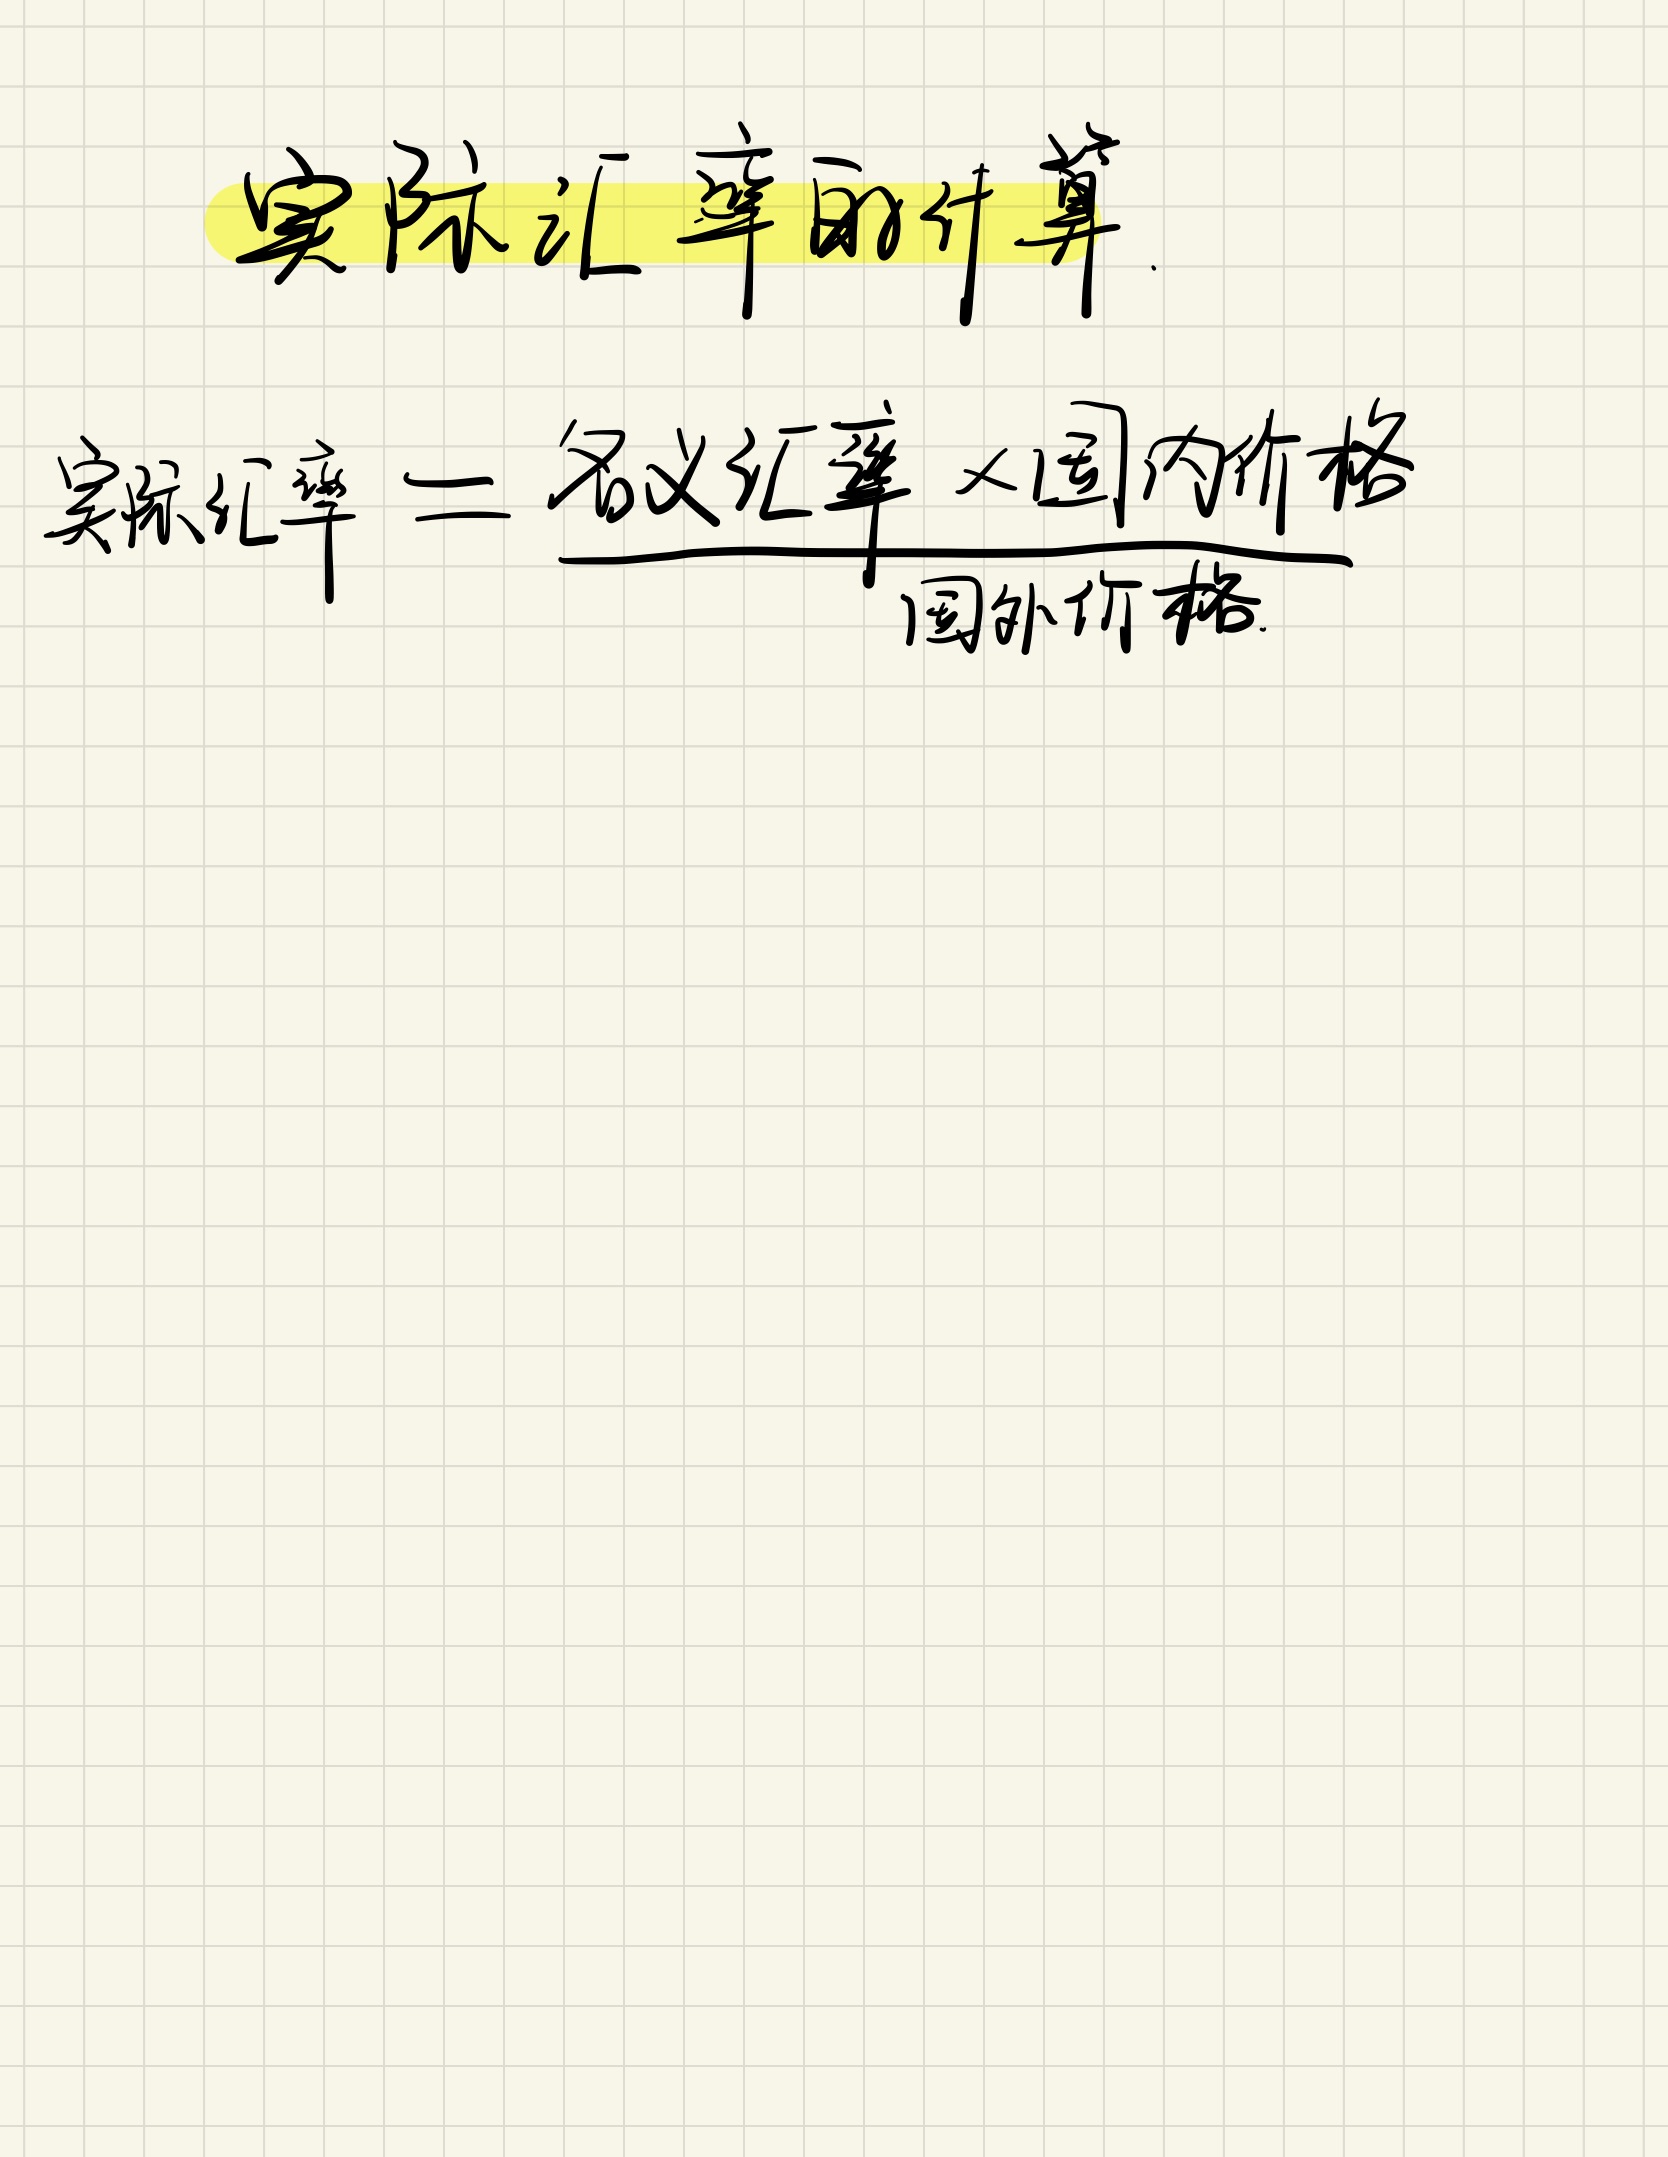 实际汇率的计算.
实际汇率 = 名义汇率 × 国内价格
国外价格.